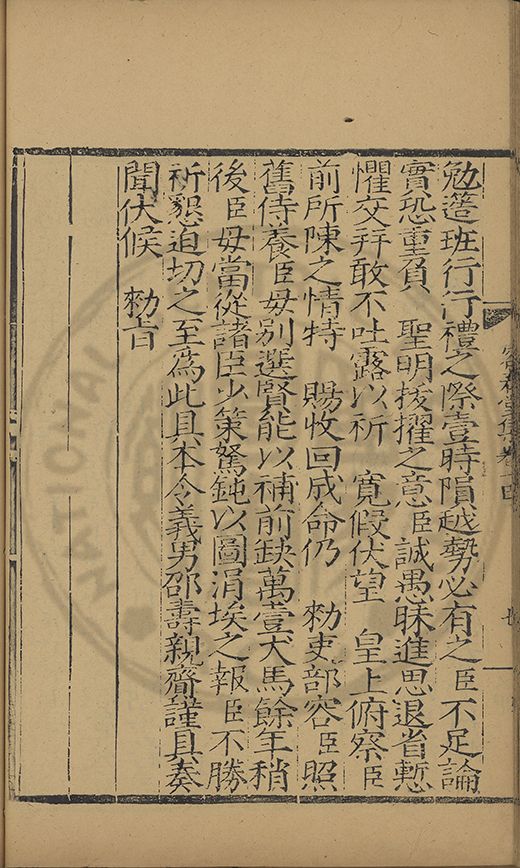 勉簉班行行禮之際壹時隕越勢必有之臣不足論
實恐重負　聖明拔擢之意臣誠愚昧進思退省慙
懼交幷敢不吐露以祈　寛假伏望　皇上俯察臣
前所陳之情特　賜收回成命仍　勑吏部容臣照
舊侍養臣母別選賢能以補前缺萬壹犬馬餘年稍
後臣母當從諸臣少策駑鈍以圖涓埃之報臣不勝
祈懇迫切之至爲此具本令義男邵壽親齎謹具奏
聞伏候　勑旨
容春堂集卷十四
NATIONAL